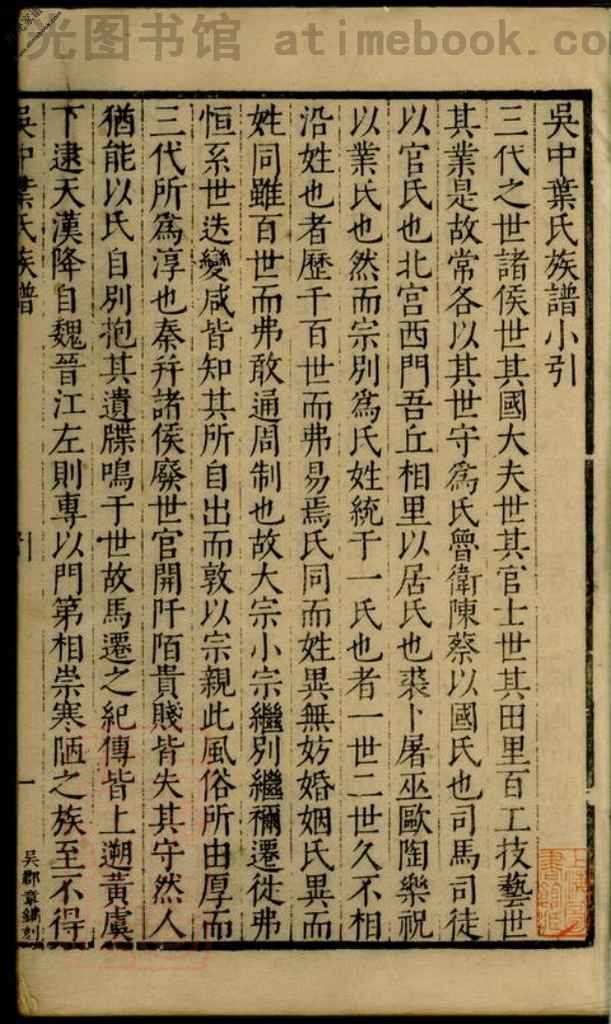 光图书馆 atimebook.co
吳中葉氏族譜小引
三代之世諸侯世其國大夫世其官士世其田里百工技藝世
其業是故常各以其世守爲氏魯衛陳蔡以國氏也司馬司徒
以官氏也北宮西門吾丘相里以居氏也裘卜屠巫歐陶樂祝
以業氏也然而宗別爲氏姓統于一氏也者一世二世久不相
沿姓也者歷千百世而弗易焉氏同而姓異無妨婚姻氏異而
姓同雖百世而弗敢通周制也故大宗小宗繼別繼禰遷徙弗
恒系世迭變咸皆知其所自出而敦以宗親此風俗所由厚而
三代所爲淳也秦幷諸侯廢世官開阡陌貴賤皆失其守然人
猶能以氏自別抱其遺牒鳴于世故馬遷之紀傳皆上遡黃虞
下逮天漢降自魏晉江左則專以門第相崇寒陋之族至不得
吳中葉氏族譜
引
一
吳郡章鏞刻